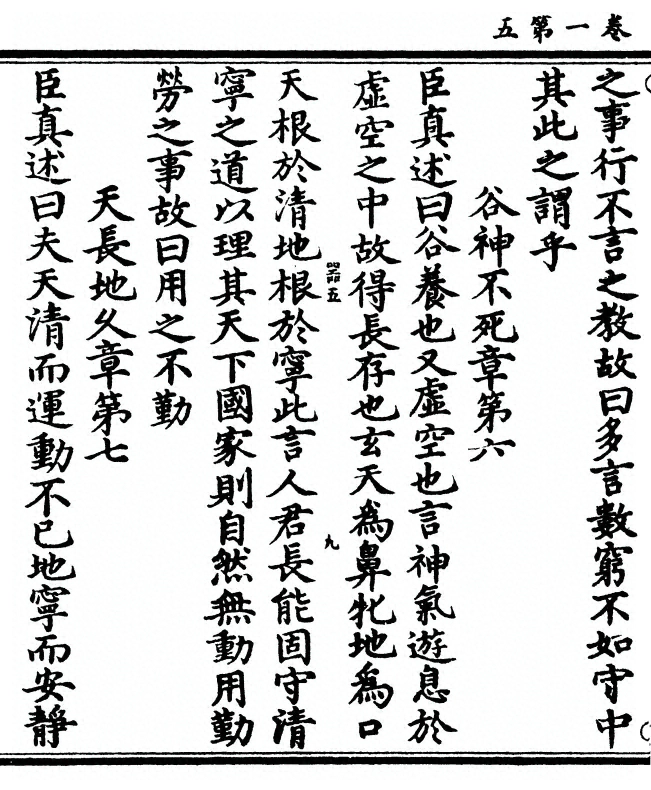 五第一卷
之事行不言之教故曰多言數窮不如守中
其此之謂乎
谷神不死章第六
臣真述曰谷養也又虛空也言神氣遊息於
虛空之中故得長存也玄天為鼻牝地為口
天根於清地根於寧此言人君長能固守清
寧之道以理其天下國家則自然無動用勤
勞之事故曰用之不勤
天長地久章第七
臣真述曰夫天清而運動不已地寧而安靜
九